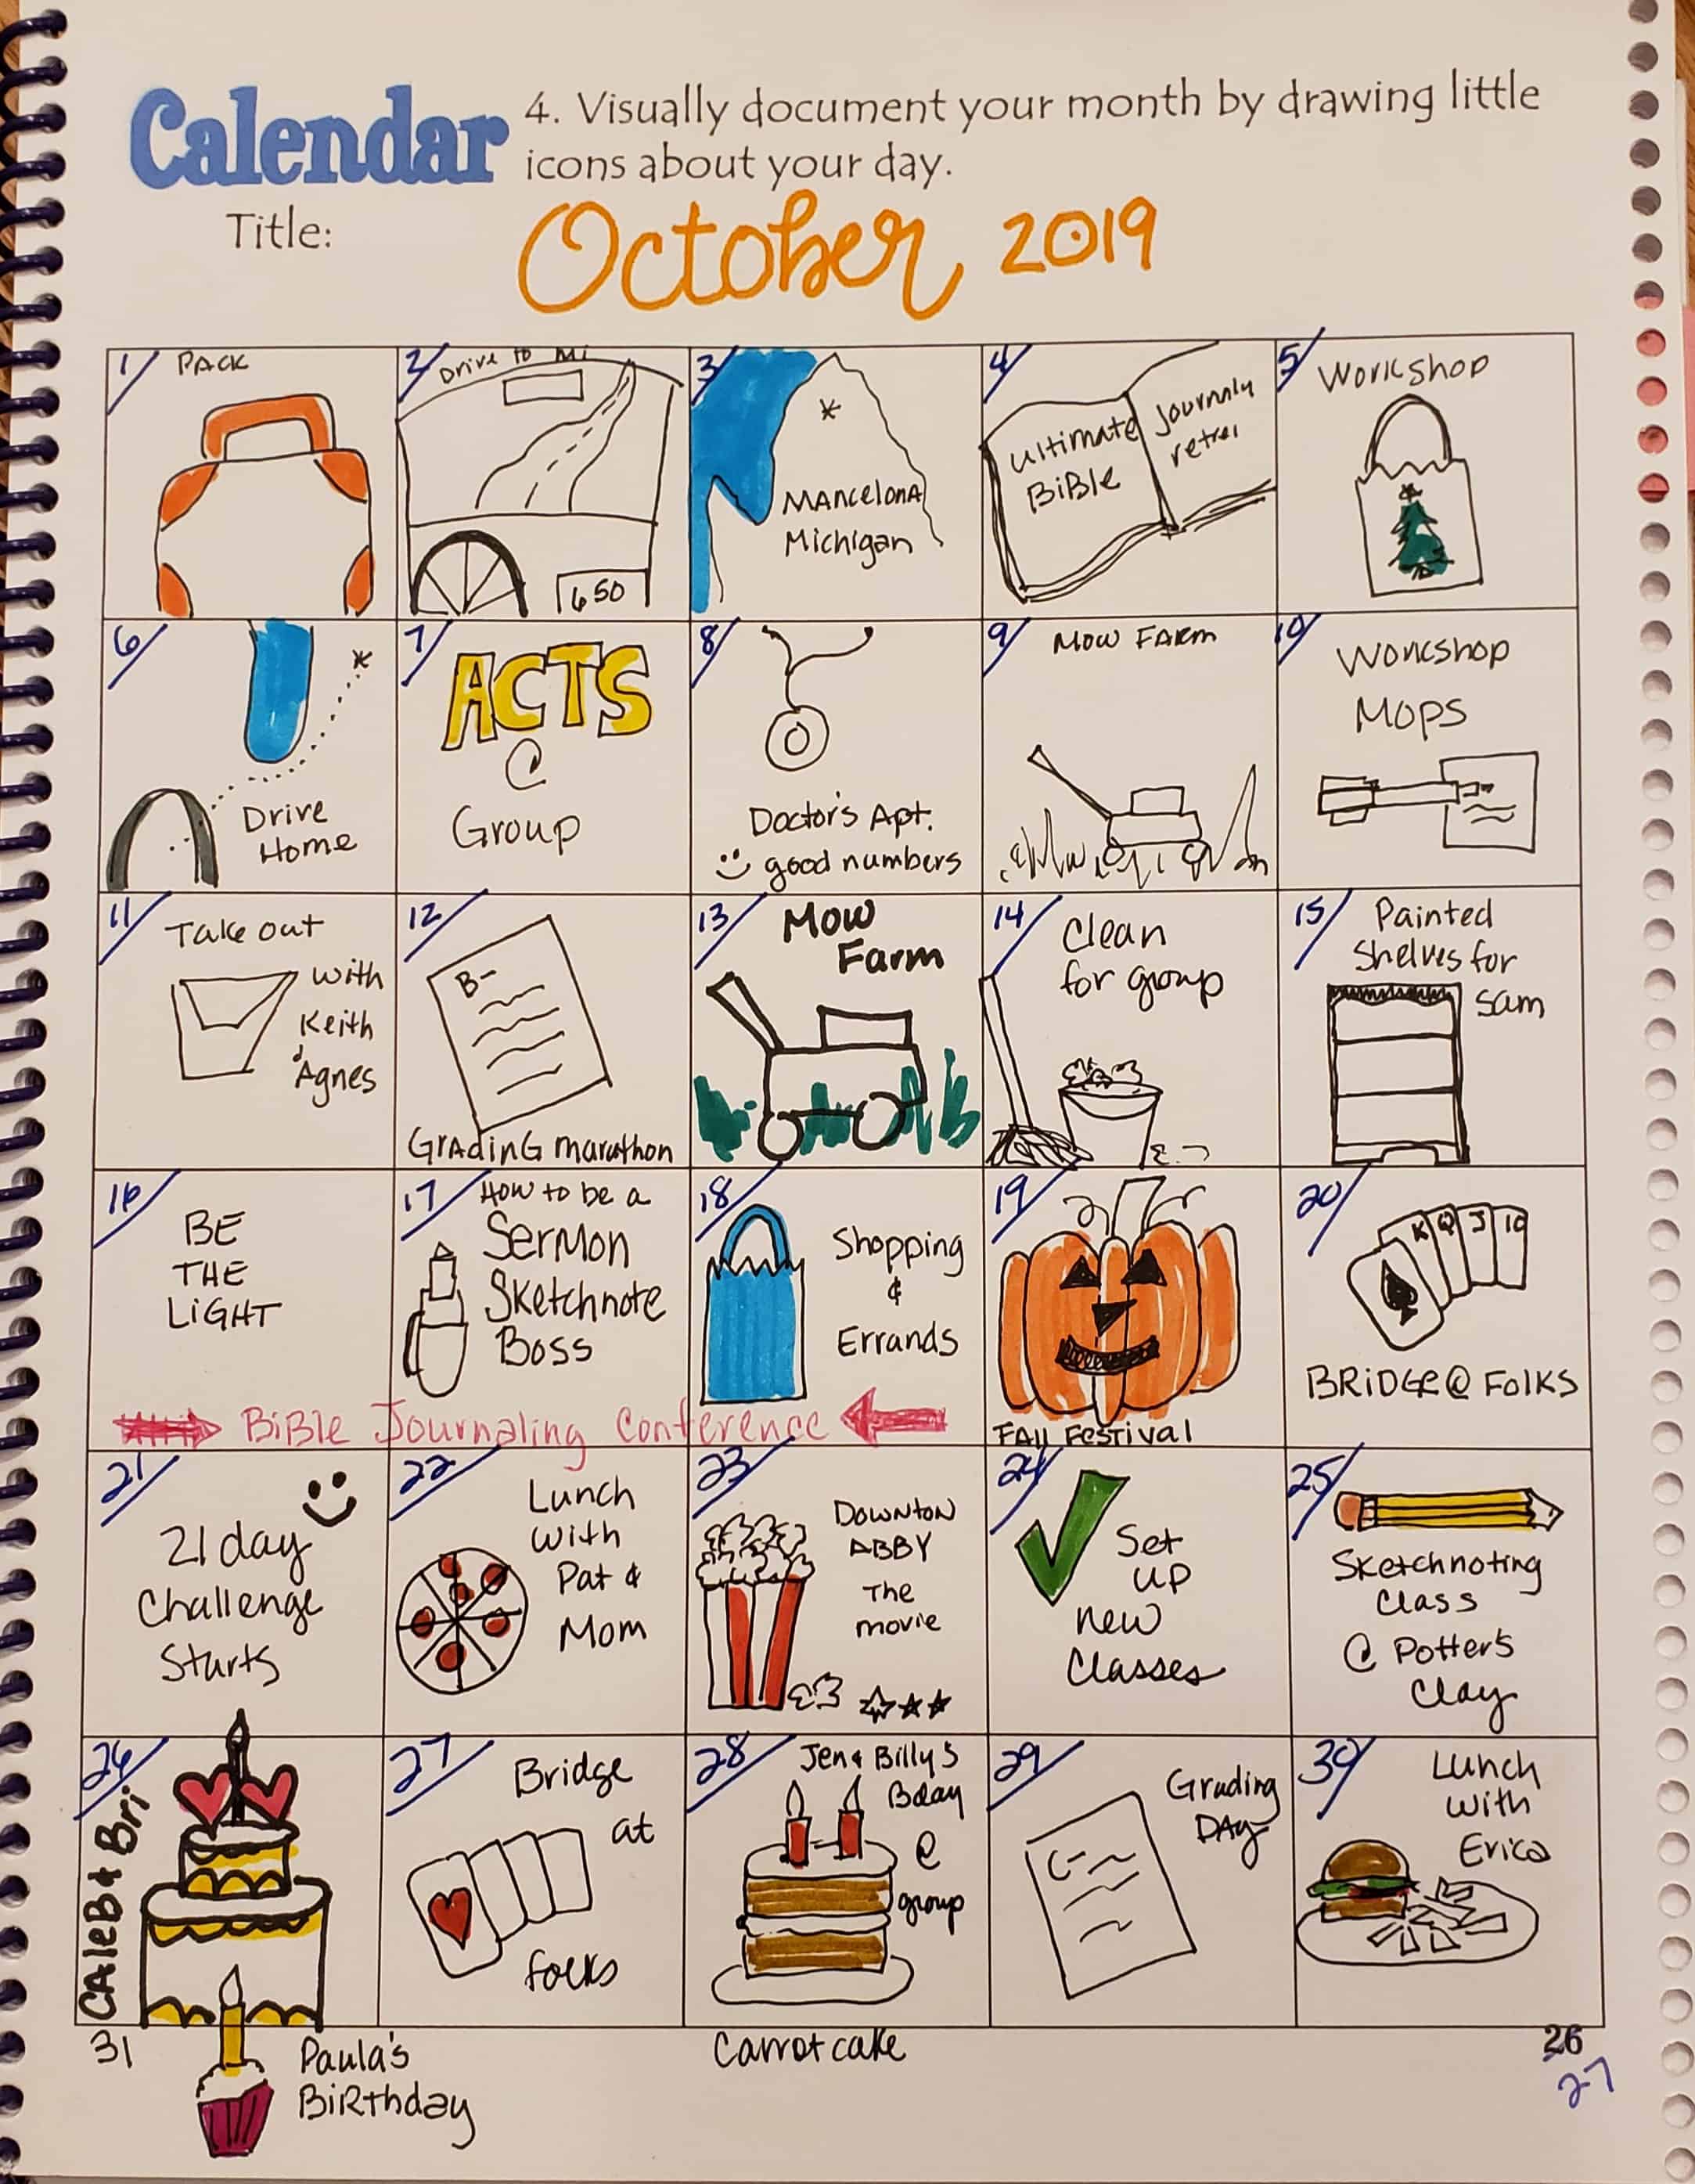 Calendar
4. Visually document your month by drawing little
icons about your day.
Title:
October 2019
1 PACK
2 Drive to Mi
650
3
MAncelonA
Michigan
4
Ultimate
BiBle
Journnly
5 Workshop
6
Drive
Home
7
ACTS
@
Group
8
Doctor's Apt.
good numbers
9 Mow FARm
10
Workshop
Mops
11 Take out
with
Keith
Agnes
12
B-
GrAdinG marathon
13 Mow
Farm
14 Clean
for group
15 Painted
Shelves for
Sam
16
BE
THE
LiGHT
17 How to be a
Sermon
Sketchnote
Boss
18
Shopping
&
Errands
BiBle Journaling Conference
19
FAll Festival
20
K Q J 10
BRiDGe @ FolKS
21
21 day
Challenge
Starts
22
Lunch
with
Pat &
Mom
23
DOWNTON
ABBY
The
movie
24
Set
up
new
Classes
25
Sketchnoting
Class
@ Potter's
Clay
26
CAleB & Bri
27
Bridge
at
folks
28 Jen & Billy's
Bday
@
group
29
Grading
DAy
C-
30 Lunch
with
Erica
31
Paula's
BiRthday
Carrot cake
26
27